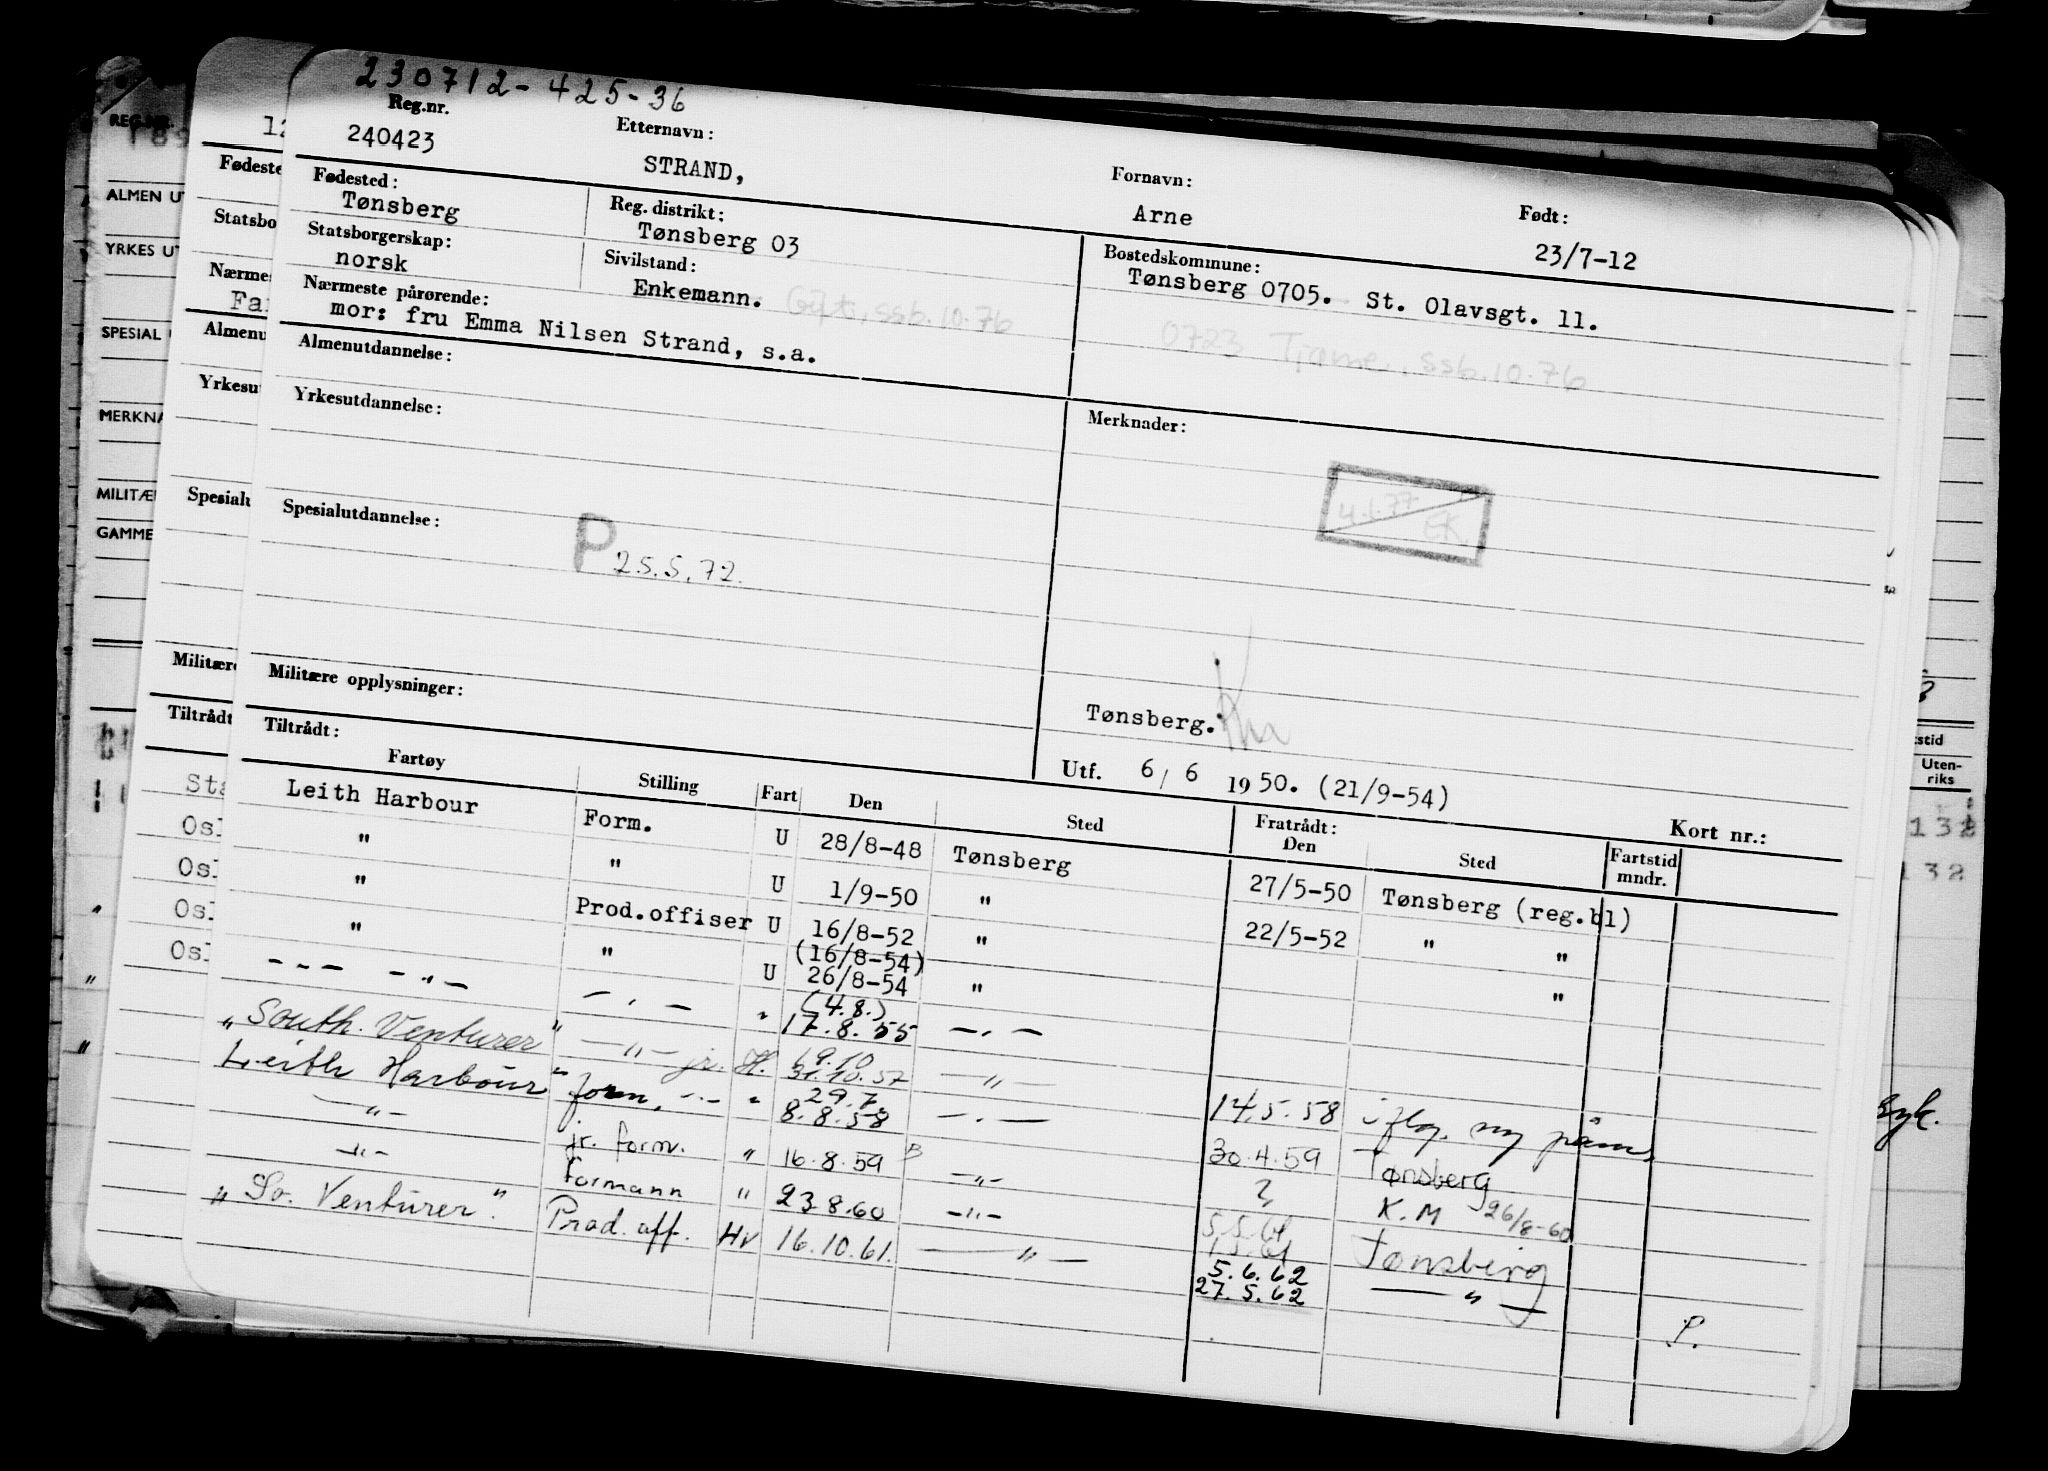 230712-425-36
Reg.nr.
240423
Etternavn:
STRAND,
Fornavn:
Arne
Født:
23/7-12
Fødested:
Tønsberg
Reg. distrikt:
Tønsberg 03
Bostedskommune:
Tønsberg 0705. St. Olavsgt. 11.
0723 Tjøme., ssb.10.76
Statsborgerskap:
norsk
Sivilstand:
Enkemann. Gift, ssb.10.76
Nærmeste pårørende:
mor: fru Emma Nilsen Strand, s.a.
Almenutdannelse:
Yrkesutdannelse:
Merknader:
4.1.77
EK
Spesialutdannelse:
P 25.5.72.
Militære opplysninger:
Tønsberg.
Utf. 6/6 1950. (21/9-54)
Kort nr.:
Tiltrådt:
Fratrådt:
Fartøy Stilling Fart Den Sted Den Sted Fartstid mndr.
Leith Harbour Form. U 28/8-48 Tønsberg 27/5-50 Tønsberg (reg.bl)
" " U 1/9-50 " 22/5-52 " "
" Prod.offiser U 16/8-52 " "
(16/8-54)
" " U 26/8-54 "
(4.8.)
-"- -"- -"- " 17.8.55 -"-
19.10
"South. Venturer" -"- jr. H. 31.10.57 -"- 14.5.58
29.7
Leith Harbour" form. -"- " 8.8.58 -"- 30.4.59 Tønsberg
-"- jr. form. " 16.8.59 -"- K.M 26/8-60
-"- Formann " 23.8.60 -"- 5.5.61 Tønsberg
1.5.61
"So. Venturer". Prod. off. Hv 16.10.61. -"- 5.6.62 -"-
27.5.62
P.
REG.NR.
ALMEN U
YRKES UT
SPESIAL
MERKNA
MILITÆ
GAMME
12
Fødeste
Statsbo
Nærmes
Fa
Almenu
Yrkesut
Spesialu
Militære
Tiltrådt
St
Os
Os
Os
Os
stid
Uten-
riks
132
132
syk.